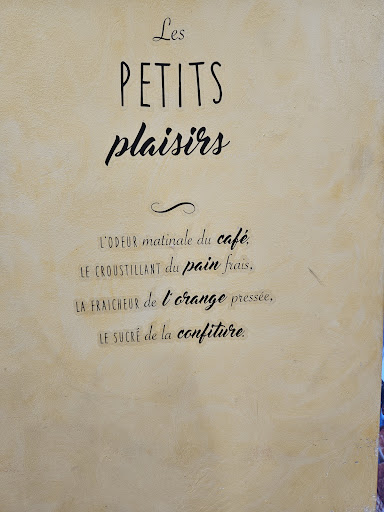 Les
PETITS
plaisirs
L'ODEUR matinale du café,
LE CROUSTILLANT du pain frais,
LA FRAICHEUR de l'orange pressée,
LE SUCRÉ de la confiture.